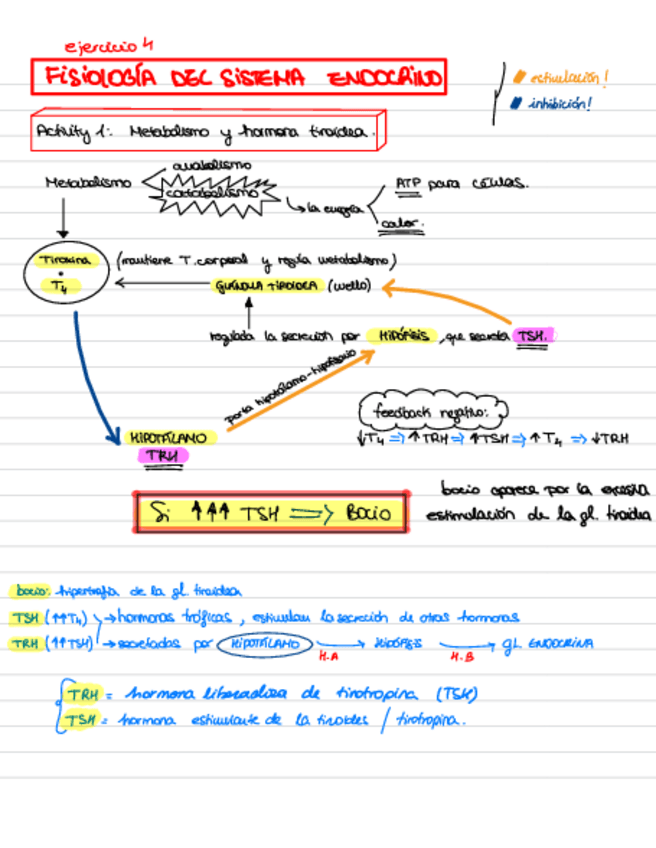 ejercicio 4
FISIOLOGÍA DEL SISTEMA ENDOCRINO
estimulación!
inhibición!
Activity 1: Metabolismo y hormona tiroidea.
anabolismo
Metabolismo
catabolismo
la energía
ATP para células.
calor.
Tiroxina
T4
(mantiene T.corporal y regula metabolismo)
GLÁNDULA TIROIDEA (cuello)
regulada la secreción por HIPÓFISIS, que secreta TSH.
porta hipotálamo-hipofisario
HIPOTÁLAMO
TRH
feedback negativo:
↓T4 => ↑TRH => ↑TSH => ↑T4 => ↓TRH
Si ↑↑↑ TSH => BOCIO
bocio aparece por la excesiva
estimulación de la gl. tiroidea
bocio: hipertrofia de la gl. tiroidea
TSH (↑↑T4) → hormonas tróficas, estimulan la secreción de otras hormonas
TRH (↑↑TSH) → secretadas por HIPOTÁLAMO → HIPÓFISIS → gl. ENDOCRINA
H.A H.B
TRH = hormona liberadora de tirotropina (TSH)
TSH = hormona estimulante de la tiroides / tirotropina.